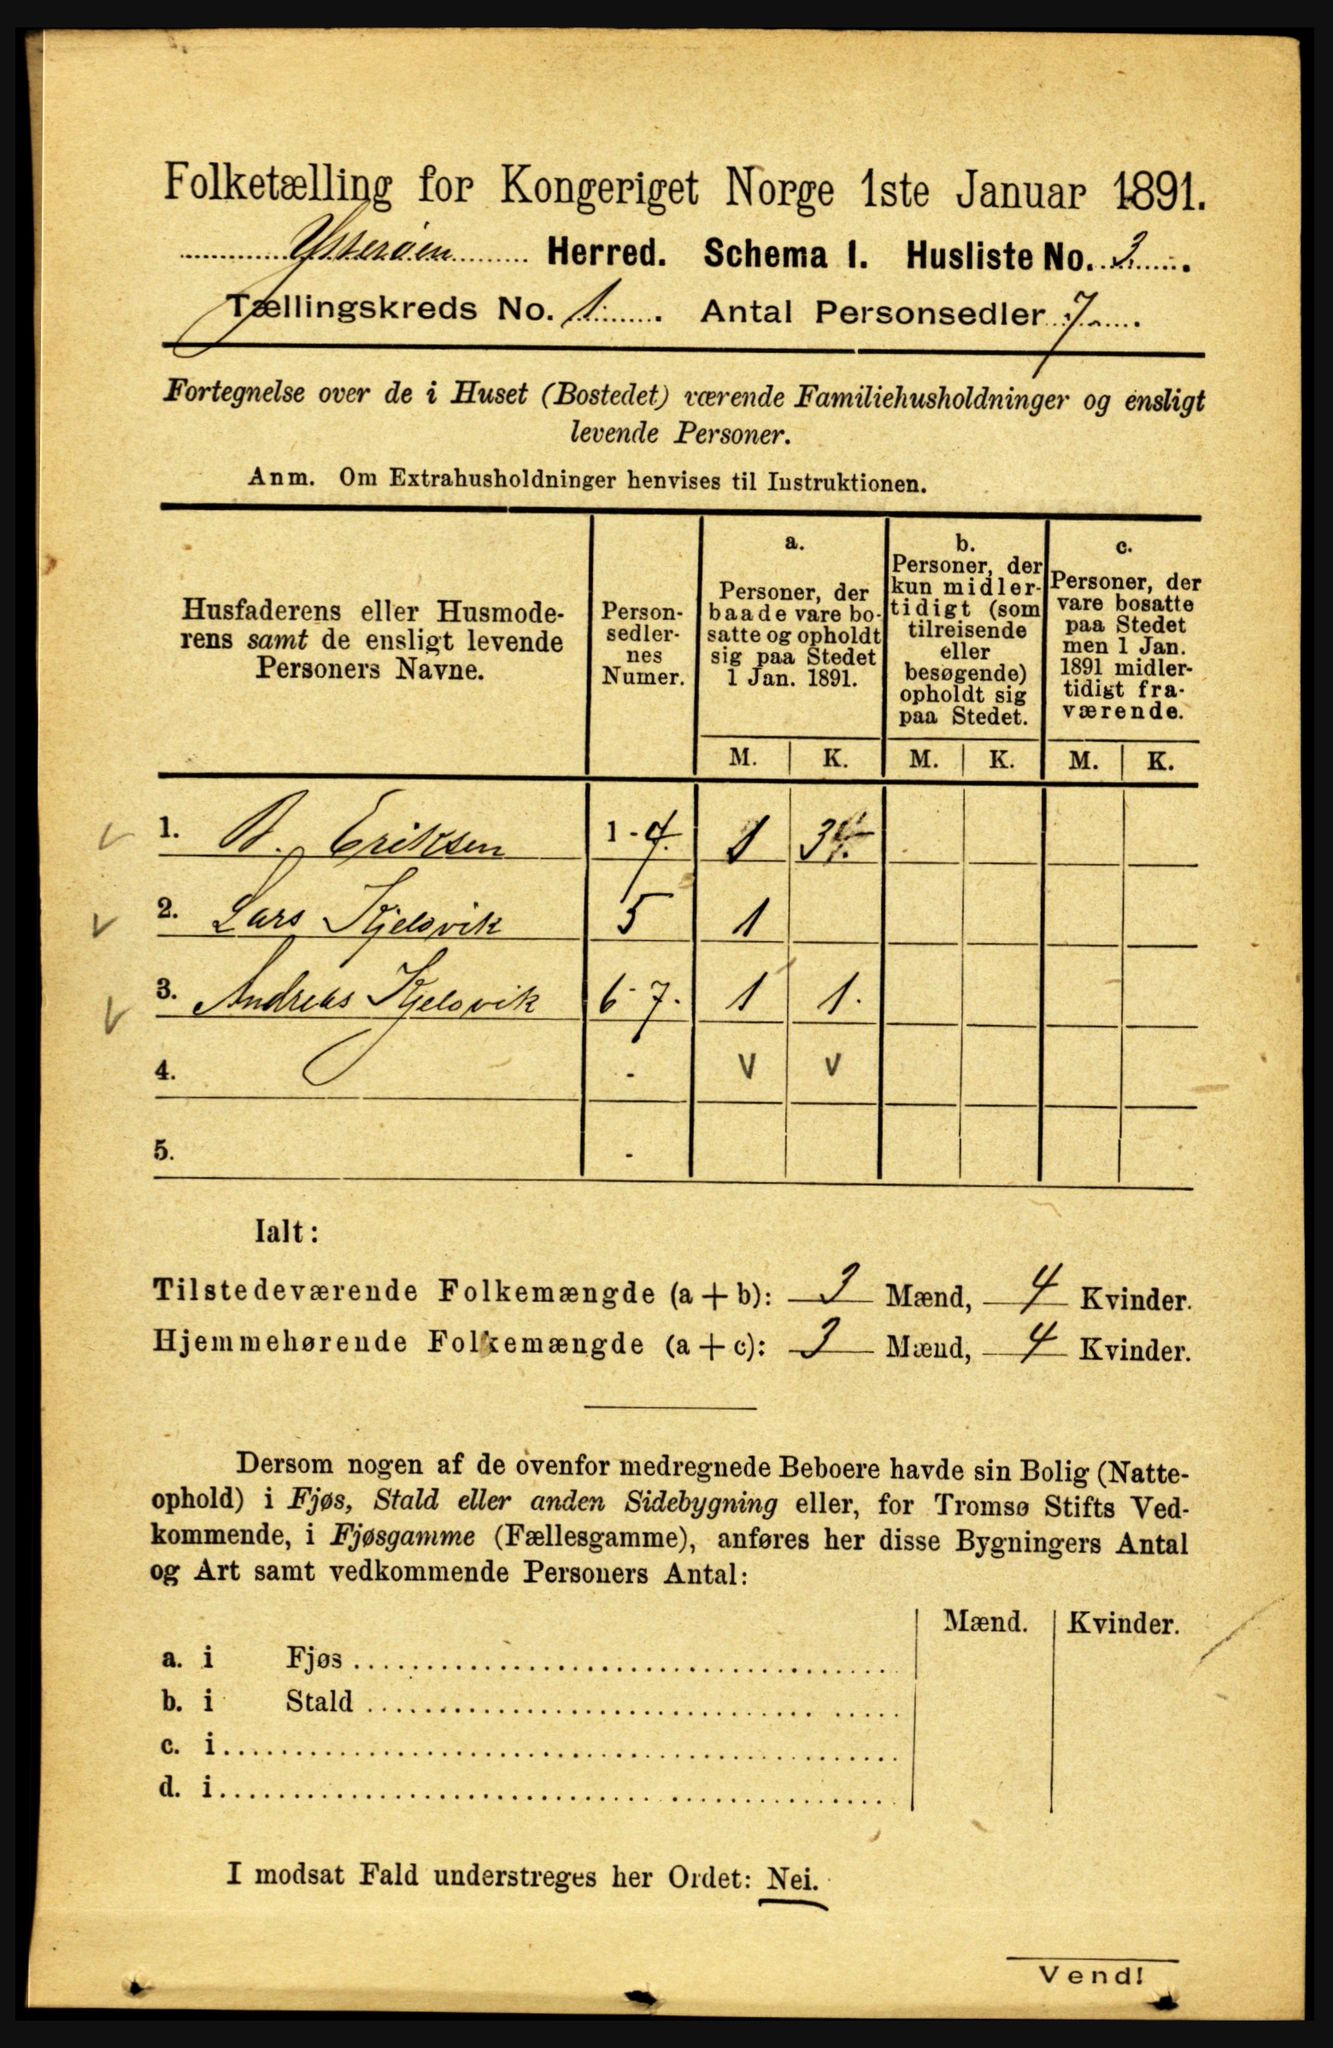 Folketælling for Kongeriget Norge 1ste Januar 1891.
Ytterøen Herred. Schema I. Husliste No. 3.
Tællingskreds No. 1. Antal Personsedler 7.
Fortegnelse over de i Huset (Bostedet) værende Familiehusholdninger og ensligt
levende Personer.
Anm. Om Extrahusholdninger henvises til Instruktionen.
Husfaderens eller Husmode-
rens samt de ensligt levende
Personers Navne.
Person-
sedler-
nes
Numer.
a.
Personer, der
baade vare bo-
satte og opholdt
sig paa Stedet
1 Jan. 1891.
b.
Personer, der
kun midler-
tidigt (som
tilreisende
eller
besøgende)
opholdt sig
paa Stedet.
c.
Personer, der
vare bosatte
paa Stedet
men 1 Jan.
1891 midler-
tidigt fra-
værende.
M. K. M. K. M. K.
1. Eriksen 1 - 4. 1 3
2. Lars Kjelsvik 5 1
3. Andreas Kjelsvik 6 - 7. 1 1.
4. - v v
5. -
Ialt:
Tilstedeværende Folkemængde (a + b): 3 Mænd, 4 Kvinder.
Hjemmehørende Folkemængde (a + c): 3 Mænd, 4 Kvinder.
Dersom nogen af de ovenfor medregnede Beboere havde sin Bolig (Natte-
ophold) i Fjøs, Stald eller anden Sidebygning eller, for Tromsø Stifts Ved-
kommende, i Fjøsgamme (Fællesgamme), anføres her disse Bygningers Antal
og Art samt vedkommende Personers Antal:
Mænd. Kvinder.
a. i Fjøs
b. i Stald
c. i
d. i
I modsat Fald understreges her Ordet: Nei.
Vend!